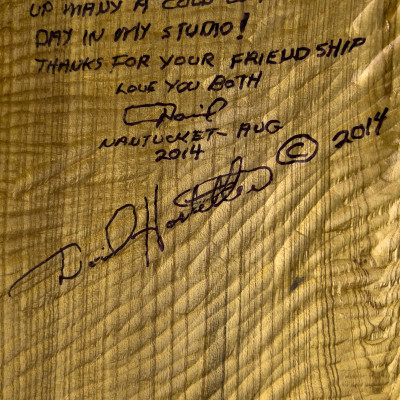 UP MANY A COLD
DAY IN MY STUDIO!
THANKS FOR YOUR FRIENDSHIP
LOVE YOU BOTH
David
NANTUCKET - AUG
2014
David Hostetler © 2014